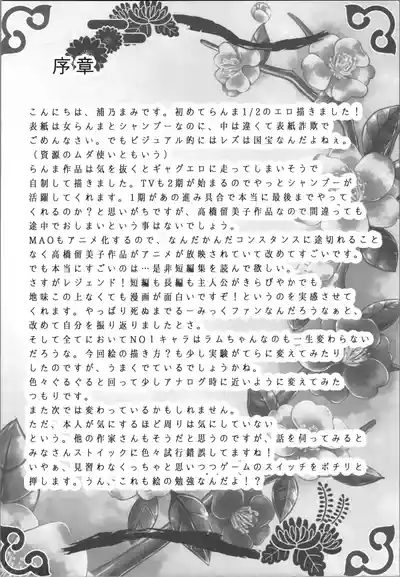 序章
こんにちは、浦乃まみです。初めてらんま1/2のエロ描きました！
表紙は女らんまとシャンプーなのに、中は違くて表紙詐欺で
ごめんなさい。でもビジュアル的にはレズは国宝なんだよねぇ。
（資源のムダ使いともいう）
らんま作品は気を抜くとギャグエロに走ってしまいそうで
自制して描きました。TVも2期が始まるのでやっとシャンプーが
活躍してくれます。1期があの進み具合で本当に最後までやって
くれるのか？と思いがちですが、高橋留美子作品なので間違っても
途中でおしまいという事はないでしょう。
MAOもアニメ化するので、なんだかんだコンスタンスに途切れること
なく高橋留美子がアニメが放映されていて改めてすごいです。
でも本当にすごいのは…是非短編集を読んで欲しい。
さすがレジェンド！短編も長編も主人公がきらびやかでも
地味この上なくても漫画が面白いですぞ！というのを実感させて
くれます。やっぱり死ぬまでるーみっくファンなんだろうなぁと、
改めて自分を振り返りましたとさ。
そして全てにおいてNO1キャラはラムちゃんなのも一生変わらない
だろうな。今回絵の描き方？も少し実験がてらに変えてみたり
したのですが、うまくでているでしょうかね。
色々ぐるぐると回って少しアナログ時に近いように変えてみた
つもりです。
また次では変わっているかもしれません。
ただ、本人が気にするほど周りは気にしていない
という。他の作家さんもそうだと思うのですが、話を伺ってみると
みなさんストイックに色々試行錯誤してますね！
いやぁ、見習わなくっちゃと思いつつゲームのスイッチをポチリと
押します。うん、これも絵の勉強なんだよ！？